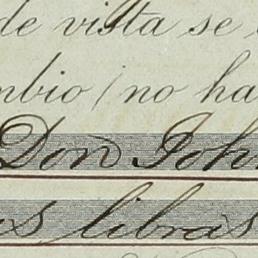 de vista se
mbio (no ha
Don Joh
as libras